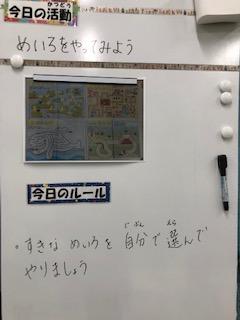 かつどう
今日の活動
めいろをやってみよう
今日のルール
じぶん えら
・すきな めいろを 自分で 選んで
やりましょう